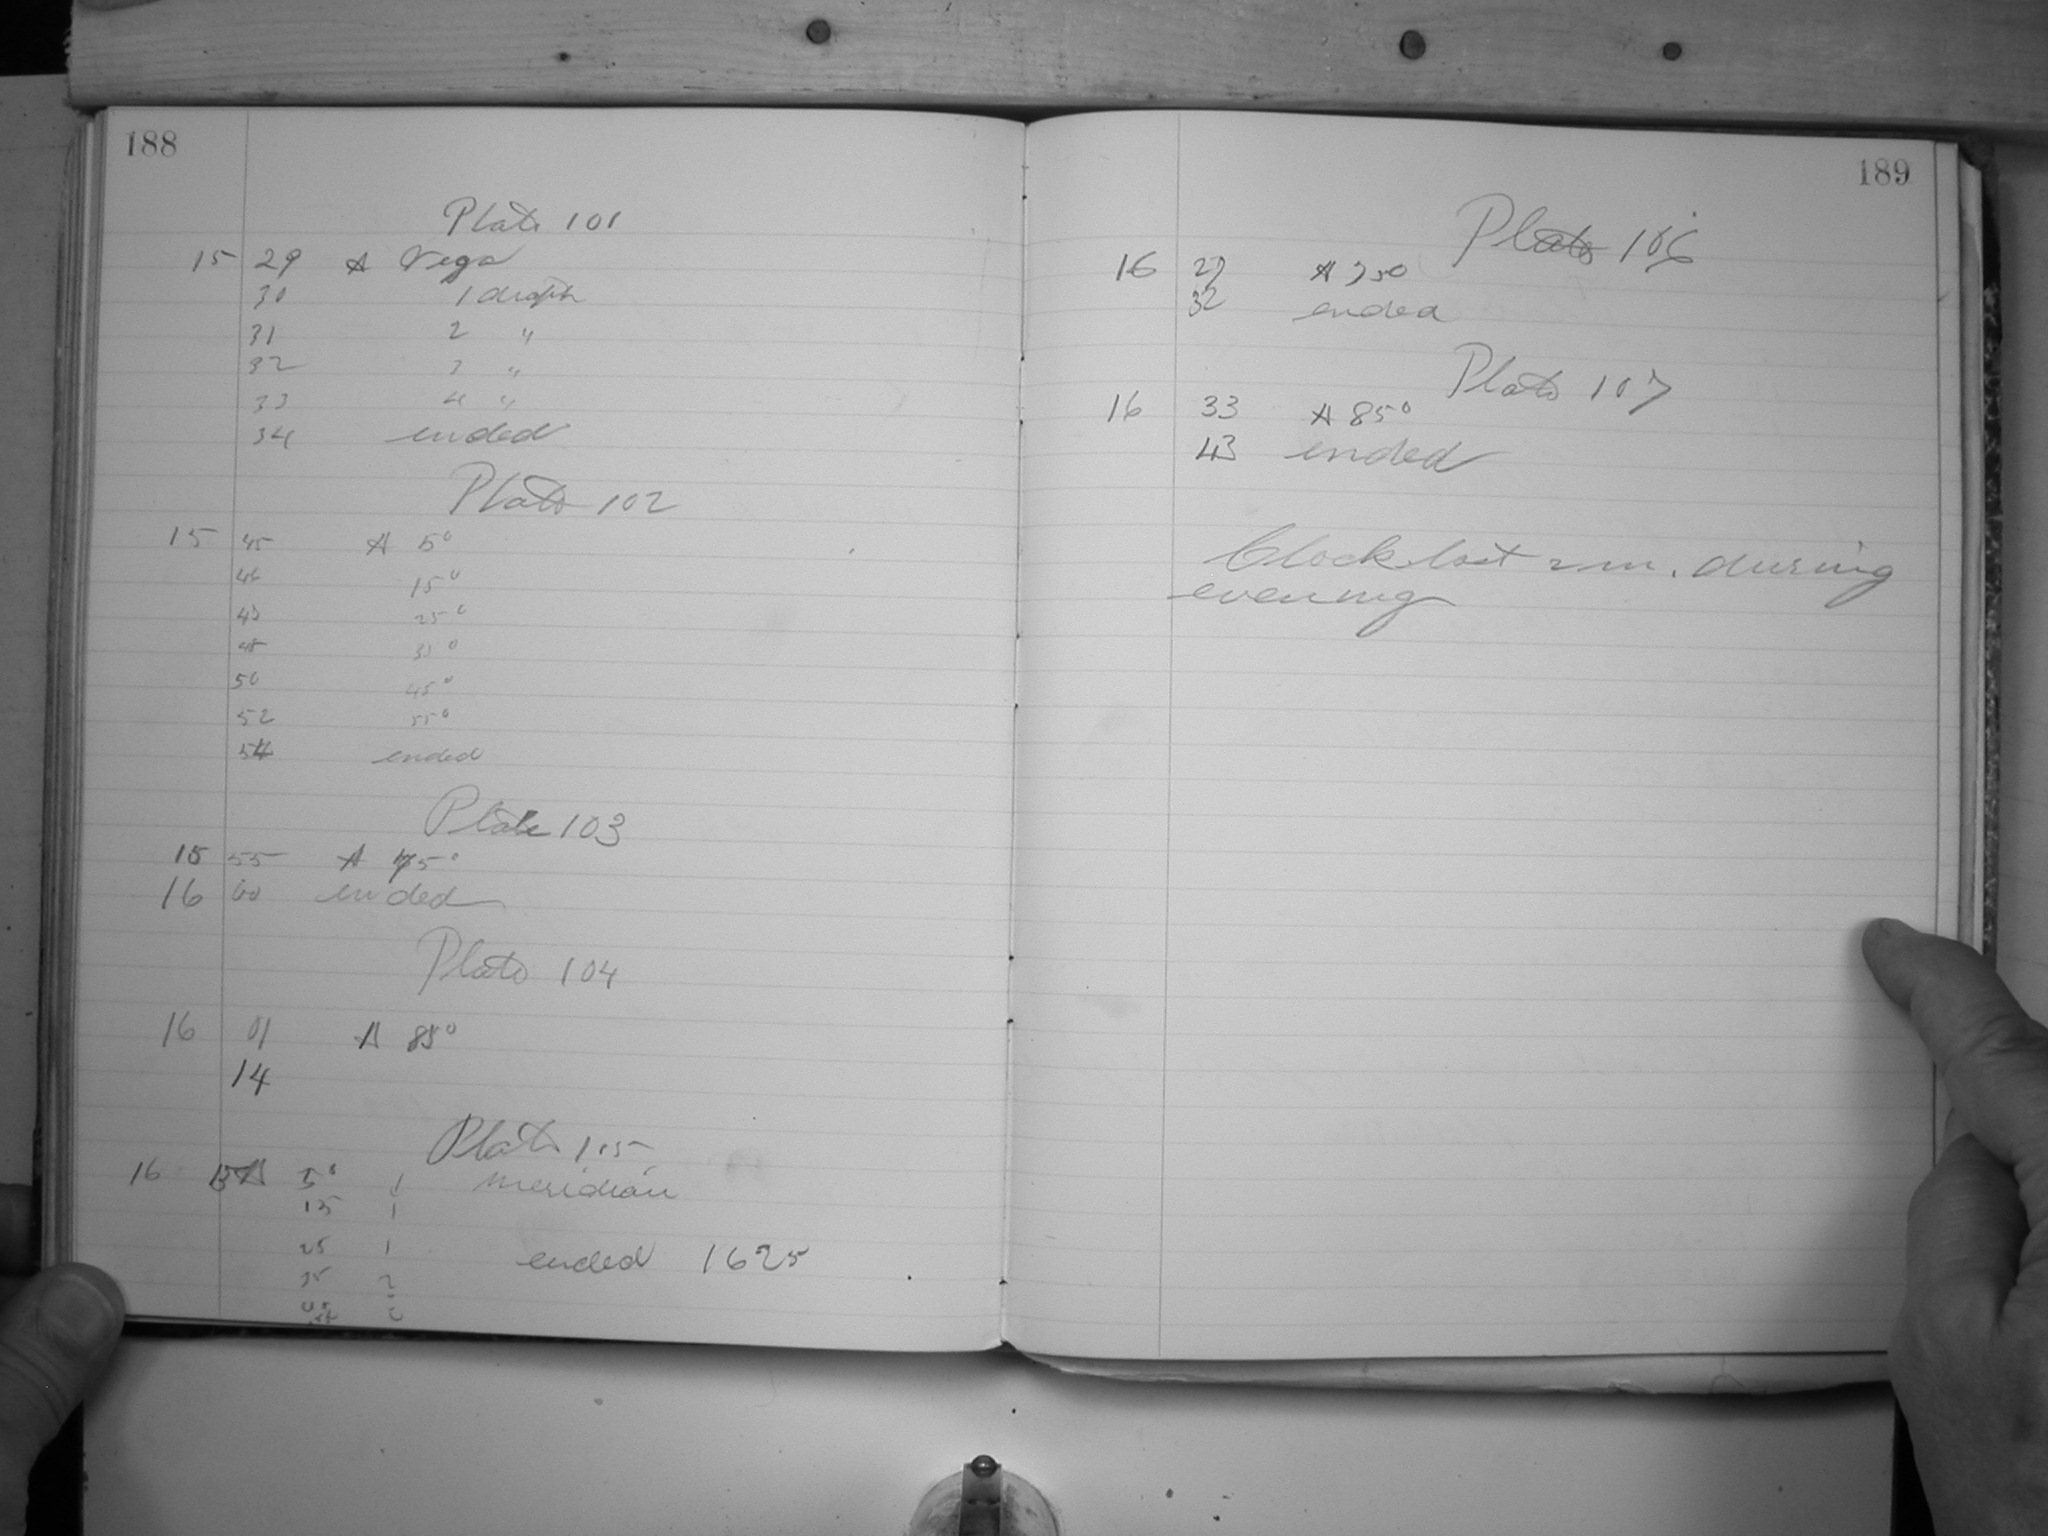 188
Plate 101
15 29 A Vega
30 1 diaph
31 2 "
32 3 "
33 4 "
34 ended
Plate 102
15 45 A 5°
46 15°
47 25°
48 35°
50 45°
52 55°
54 ended
Plate 103
15 55 A 75°
16 00 ended
Plate 104
16 01 A 85°
14
Plate 105
16 15 A 5° 1 meridian
15 1
25 1 ended 16 25
35 2
189
Plate 106
16 27 A 75°
32 ended
Plate 107
16 33 A 85°
43 ended
Clock lost 2 m. during
evening